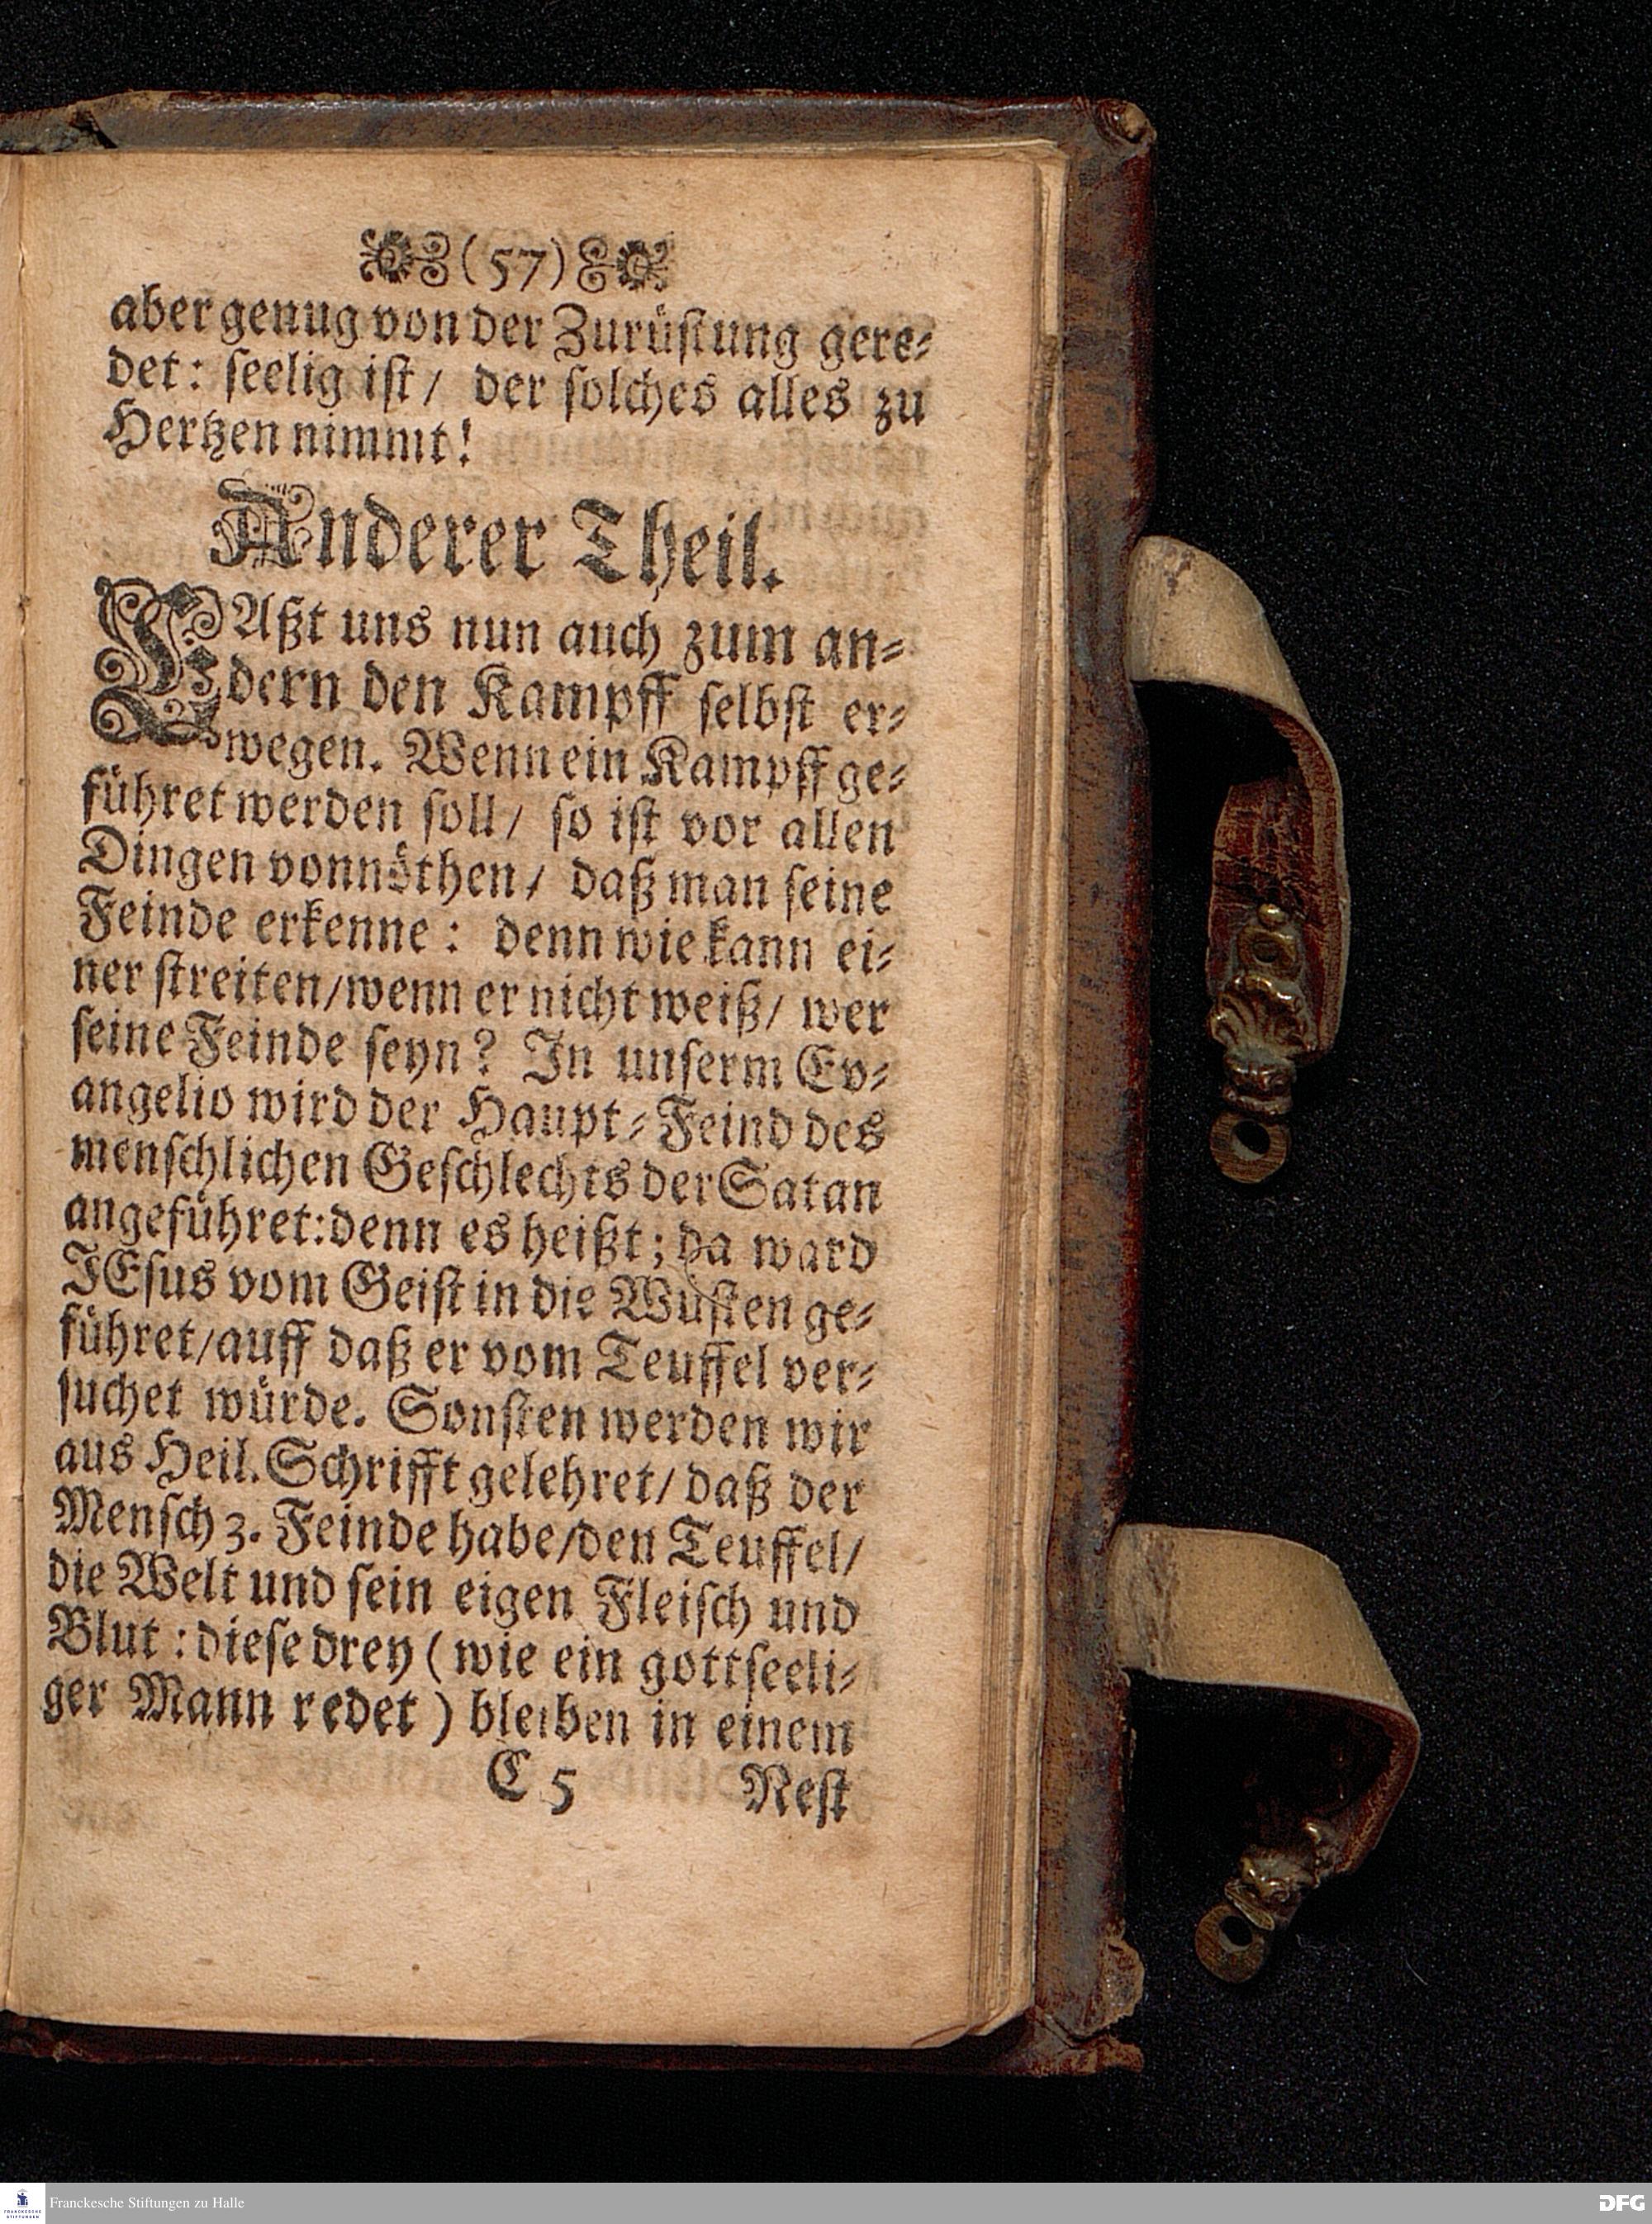 (57)
aber genug von der Zurüstung gere-
det: seelig ist/ der solches alles zu
Hertzen nimmt!
Anderer Theil.
LAßt uns nun auch zum an-
dern den Kampff selbst er-
wegen. Wenn ein Kampff ge-
führet werden soll/ so ist vor allen
Dingen vonnöthen/ daß man seine
Feinde erkenne: denn wie kann ei-
ner streiten/wenn er nicht weiß/ wer
seine Feinde seyn? In unserm Ev-
angelio wird der Haupt-Feind des
menschlichen Geschlechts der Satan
angeführet: denn es heißt; da ward
JEsus vom Geist in die Wüsten ge-
führet/auff daß er vom Teuffel ver-
suchet würde. Sonsten werden wir
aus Heil. Schrifft gelehret/ daß der
Mensch 3. Feinde habe/den Teuffel/
die Welt und sein eigen Fleisch und
Blut: diese drey (wie ein gottseeli-
ger Mann redet) bleiben in einem
C 5 Nest
Franckesche Stiftungen zu Halle
DFG